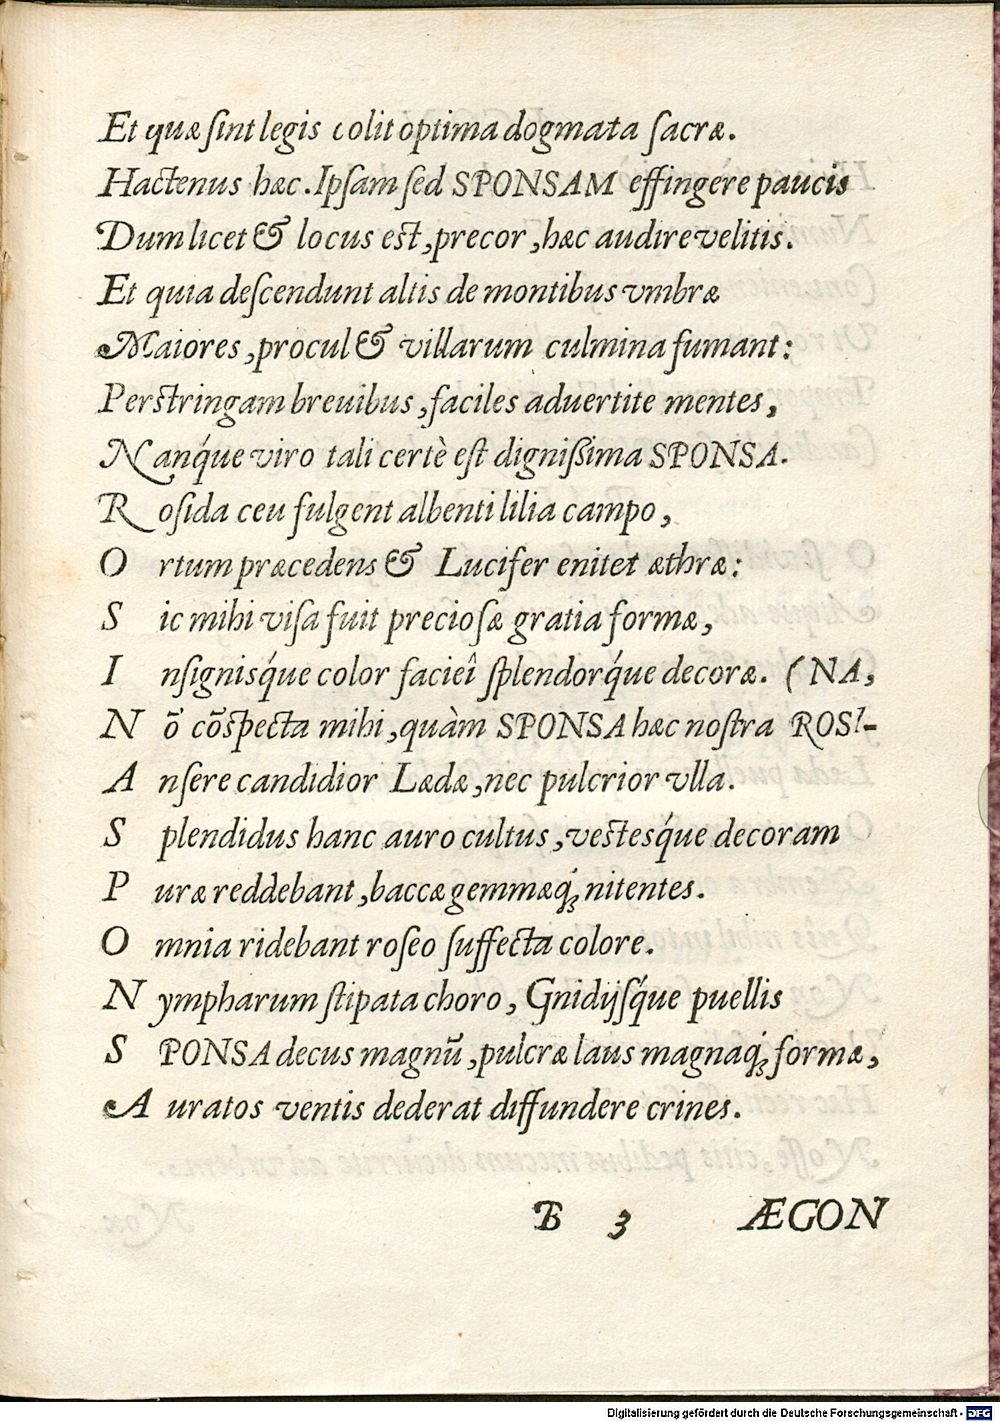 Et quæ ſint legis colit optima dogmata ſacræ.
Hactenus hæc. Ipſam ſed SPONSAM effingere paucis
Dum licet & locus eſt, precor, hæc audire velitis.
Et quia deſcendunt altis de montibus vmbræ
Maiores, procul & villarum culmina fumant:
Perſtringam breuibus, faciles aduertite mentes,
Nanq́ue viro tali certè eſt digniſſima SPONSA.
R oſida ceu fulgent albenti lilia campo,
O rtum præcedens & Lucifer enitet æthræ:
S ic mihi viſa fuit precioſæ gratia formæ,
I nſignisq́ue color faciei ſplendorq́ue decoræ. (NA,
N ō cōſpecta mihi, quàm SPONSA hæc noſtra ROSI-
A nſere candidior Lædæ, nec pulcrior vlla.
S plendidus hanc auro cultus, veſtesq́ue decoram
P uræ reddebant, baccæ gemmæq́ꝫ nitentes.
O mnia ridebant roſeo ſuffecta colore.
N ympharum ſtipata choro, Gnidijſq́ue puellis
S PONSA decus magnū, pulcræ laus magnaq́ꝫ formæ,
A uratos ventis dederat diffundere crines.
B 3 ÆGON
Digitalisierung gefördert durch die Deutsche Forschungsgemeinschaft - DFG